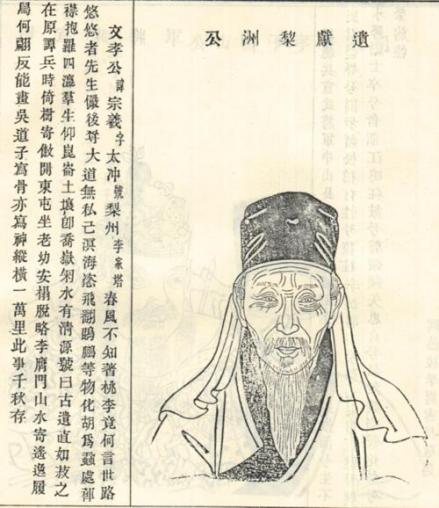 遺獻梨洲公
文孝公諱宗羲字太冲號梨州李家塔春風不知著桃李竟何言世路
悠悠者先生儼後尋大道無私己溟海恣飛翻鵾鵬等物化胡爲蝨處褌
襟抱羅四瀛羣生仰崑崙土壤卽喬嶽矧水有清源號曰古遺直如敍之
在原譚兵時倚樹寄傲閒東屯坐老幼安榻脫略李膺門山水寄遙遙履
局何翩反能畫吳道子寫骨亦寫神縱橫一萬里此事千秋存